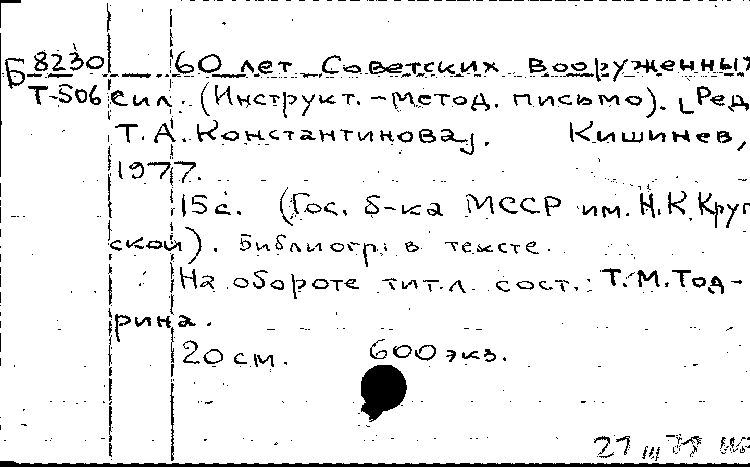 Б 8230 60 лет Советских Вооруженных
Т-506 сил. (Инструкт.-метод. письмо). [Ред.
Т.А. Константинова]. Кишинев,
1977.
15 с. (Гос. б-ка МССР им. Н.К. Круп
ской). Библиогр. в тексте.
На обороте тит.л. сост.: Т.М. Тод-
рина.
20 см. 600 экз.
21 III 78